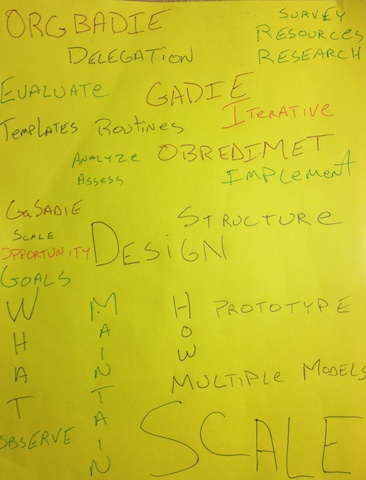 ORGBADIE
SURVEY
RESOURCES
RESEARCH
DELEGATION
EVALUATE
GADIE
ITERATIVE
TEMPLATES ROUTINES
OBREDIMET
ANALYZE
ASSESS
IMPLEMENT
GaSADIE
STRUCTURE
SCALE
OPPORTUNITY
DESIGN
GOALS
WHAT
MAINTAIN
HOW
PROTOTYPE
MULTIPLE MODELS
OBSERVE
SCALE